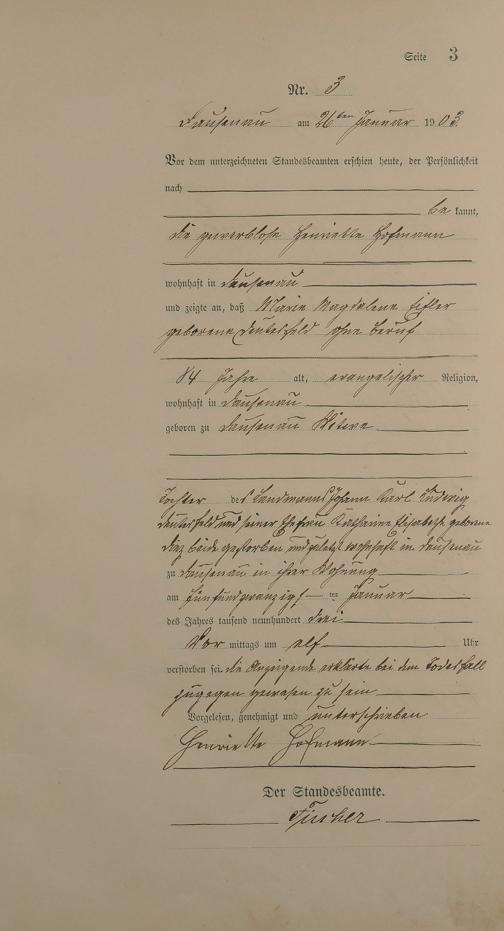 Seite 3
Nr. 3
Dausenau am 26ten Januar 1903
Vor dem unterzeichneten Standesbeamten erschien heute, der Persönlichkeit
nach
be kannt,
die gewerblose Henriette Hofmann
wohnhaft in Dausenau
und zeigte an, daß Marie Magdalene
geborene ohne Beruf
84 Jahre alt, evangelischer Religion,
wohnhaft in Dausenau
geboren zu Dausenau Witwe
Tochter des Landmanns Johann Karl Ludwig
und seiner Ehefrau Katharine Elisabeth geborene
beide gestorben und zuletzt wohnhaft in Dausenau
zu Dausenau in ihrer Wohnung
am fünfundzwanzigs ten Januar
des Jahres tausend neunhundert drei
Vor mittags um elf Uhr
verstorben sei. die Anzeigende erklärte bei dem Todesfall
zugegen gewesen zu sein
Vorgelesen, genehmigt und unterschrieben
Henriette Hofmann
Der Standesbeamte.
Fischer